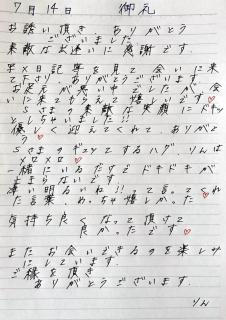 7月14日 御礼
お誘い頂き ありがとう
ございました
素敵な出逢いに感謝です。
写メ日記等を見て会いに来
て下さり ありがとうございます。
お足元が悪い中でしたが会
いに来てもらえて嬉しいです♡
Sさまの素敵な笑顔にドキッ
としちゃいました!!
優しく迎えてくれて ありがと
う♡
Sさまのギュッてするハグ りんは
メロメロ♡
一緒にいるだけでドキドキが
止まらないです
凄い明るいね!!って言ってくれ
た言葉 めっちゃ嬉しかった♡
気持ち良くなって頂けて
良かったです♡
またお会いできるのを楽しみ
にしています。
ご縁を頂き
ありがとうございます。
りん